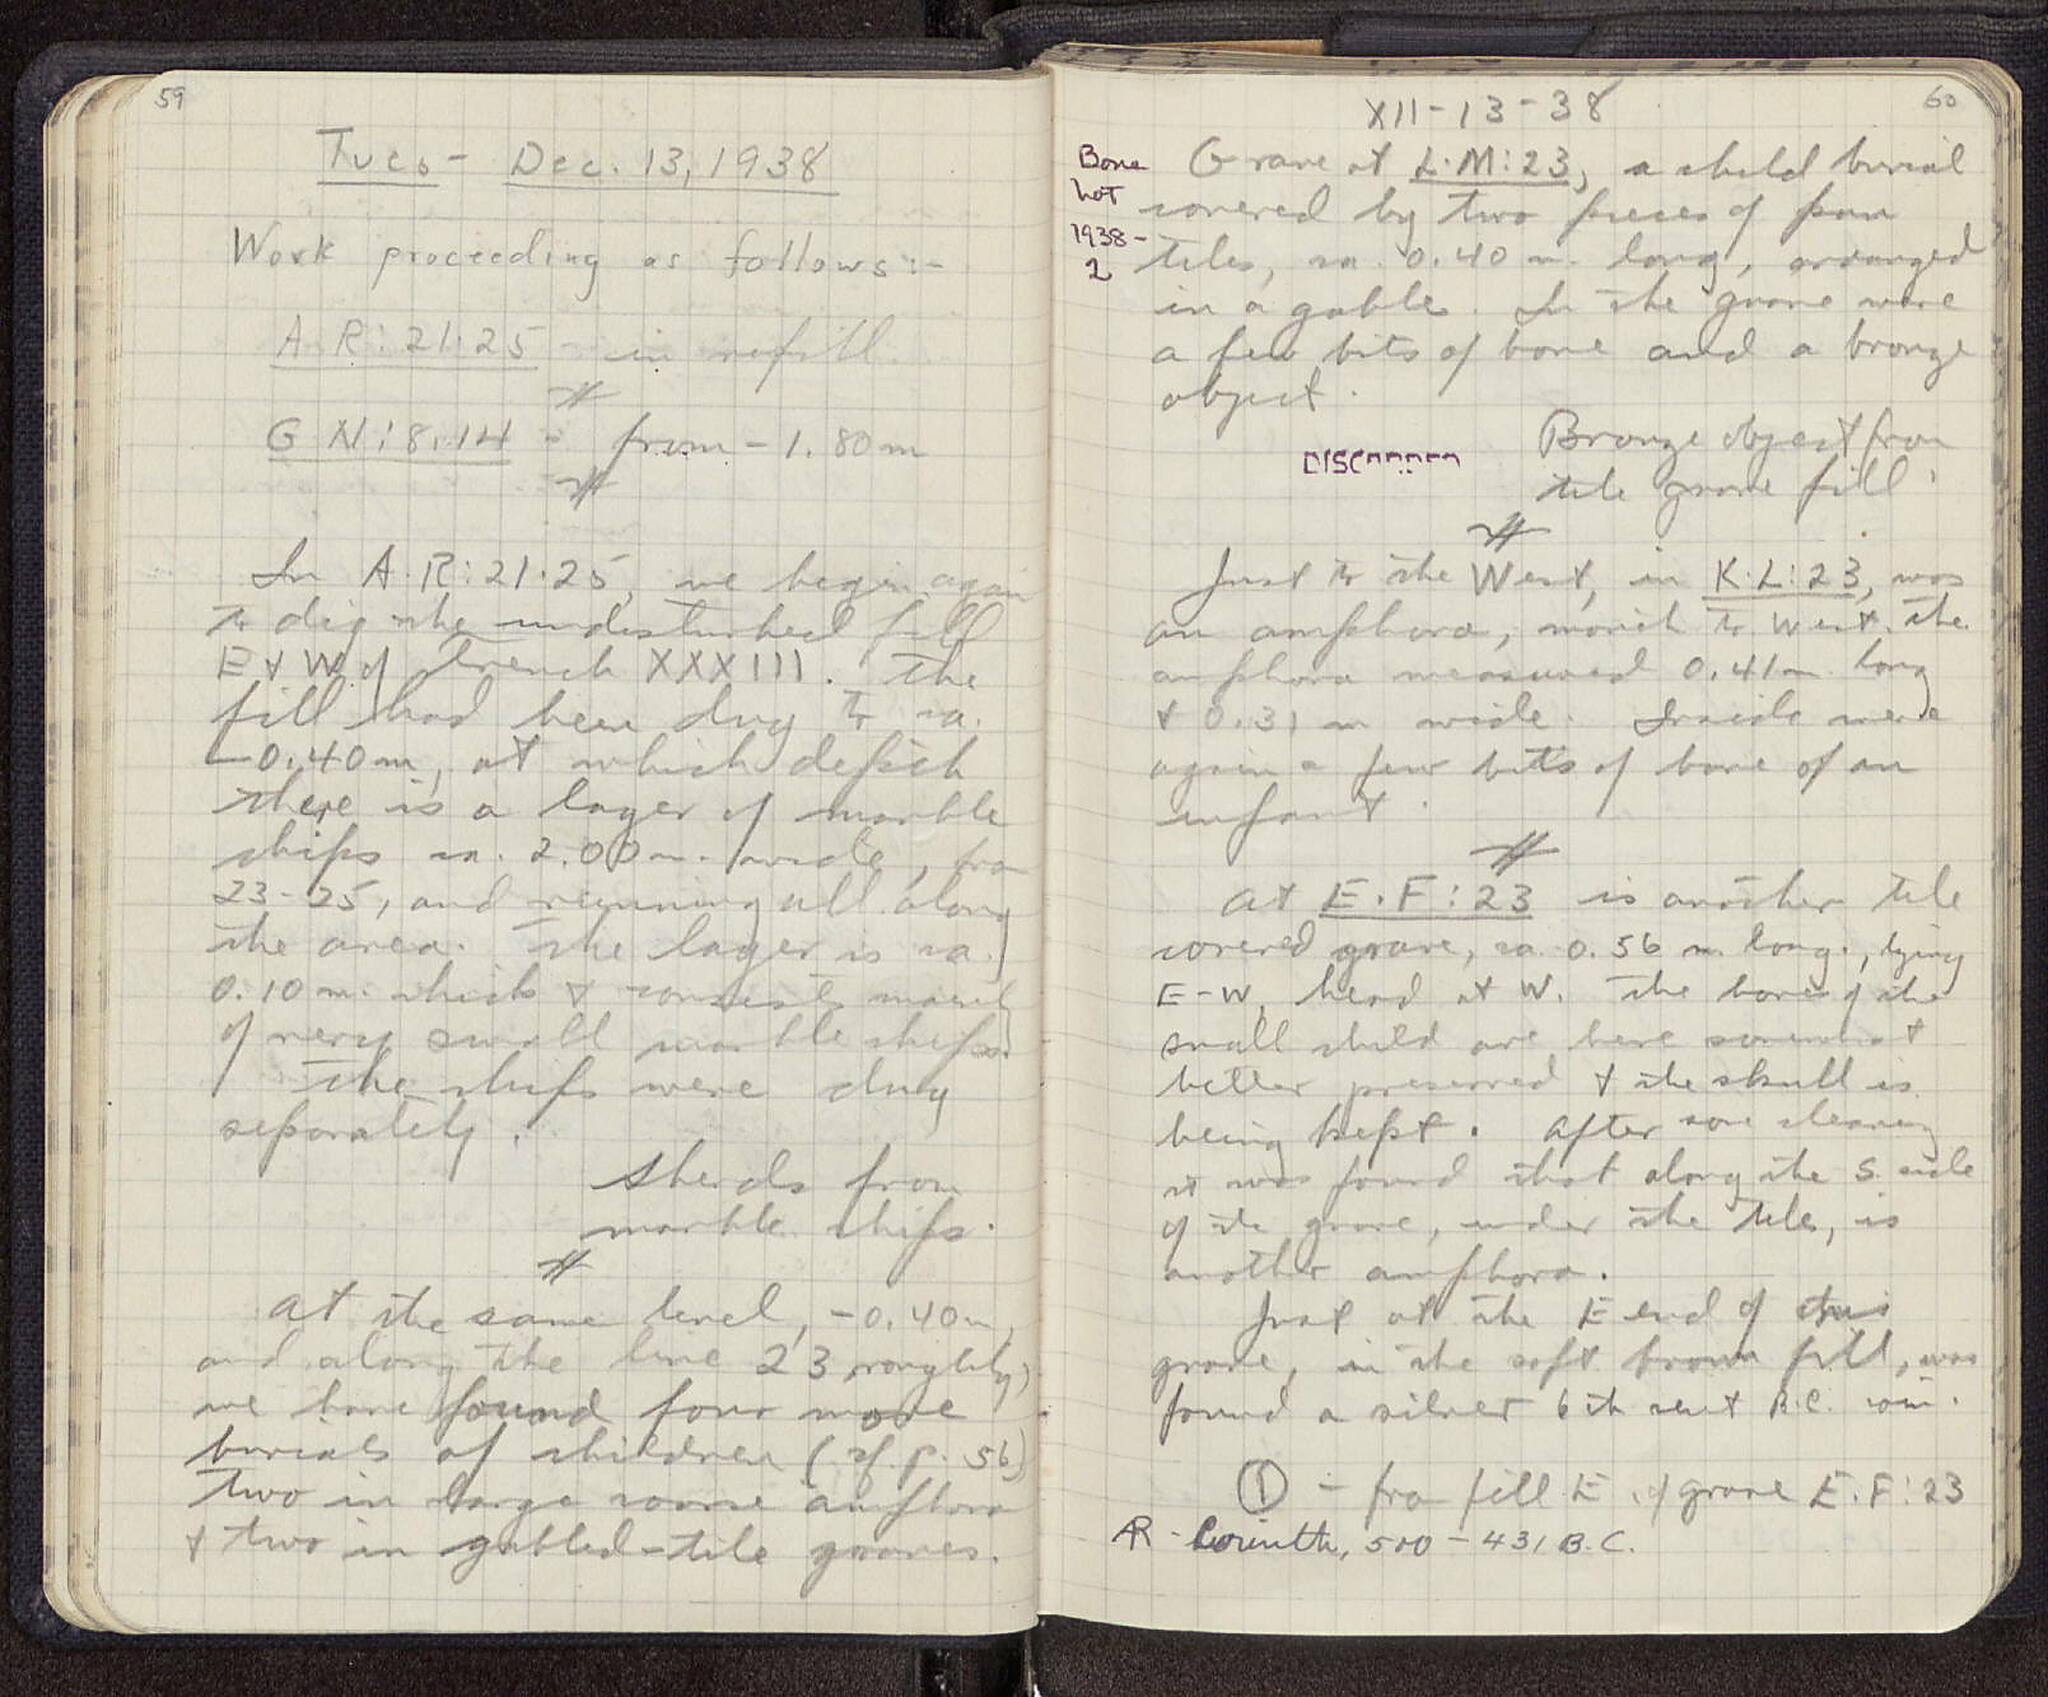 59
Tues - Dec. 13, 1938
Work proceeding as follows :-
A·R : 21·25 - in refill.
G·N : 8·14 - from - 1.80 m
In A·R : 21·25, we begin again
to dig the undisturbed fill
E & W. of trench XXXIII. The
fill had been dug to ca.
-0.40 m, at which depth
there is a layer of marble
chips ca. 2.00 m. wide, from
23-25, and running all along
the area. The layer is ca.
0.10 m. thick & consists mainly
of very small marble chips.
The chips were dug
separately.
Sherds from
marble chips.
At the same level, -0.40 m,
and along the line 23 roughly,
we have found four more
burials of children (cf. p. 56)
two in large coarse amphora
& two in gabled-tile graves.
60
XII-13-38
Bone
lot
1938-
2
Grave at L·M : 23, a child burial
covered by two pieces of pan
tiles, ca. 0.40 m. long, arranged
in a gable. In the grave were
a few bits of bone and a bronze
object.
DISCARDED
Bronze object from
tile grave fill.
Just to the West, in K·L : 23, was
an amphora, mouth to West. The
amphora measured 0.41 m. long
& 0.31 m wide. Inside were
again a few bits of bone of an
infant.
At E·F : 23 is another tile
covered grave, ca. 0.56 m. long, lying
E-W, head at W. The bones of the
small child are here somewhat
better preserved & the skull is
being kept. After some cleaning
it was found that along the S. side
of the grave, under the tile, is
another amphora.
Just at the E end of this
grave, in the soft brown fill, was
found a silver 6th cent B.C. coin.
① - from fill E. of grave E·F : 23
AR - Corinth, 500 - 431 B.C.